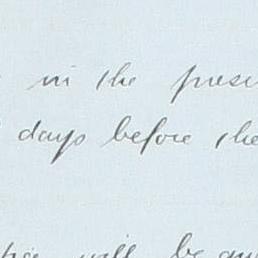 in the prese
days before the
will be